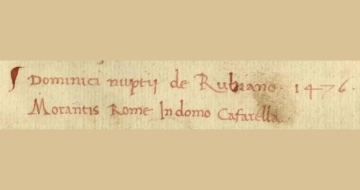 Dominici nuptij de Rubiano. 1476.
Morantis Rome In domo Cafarella